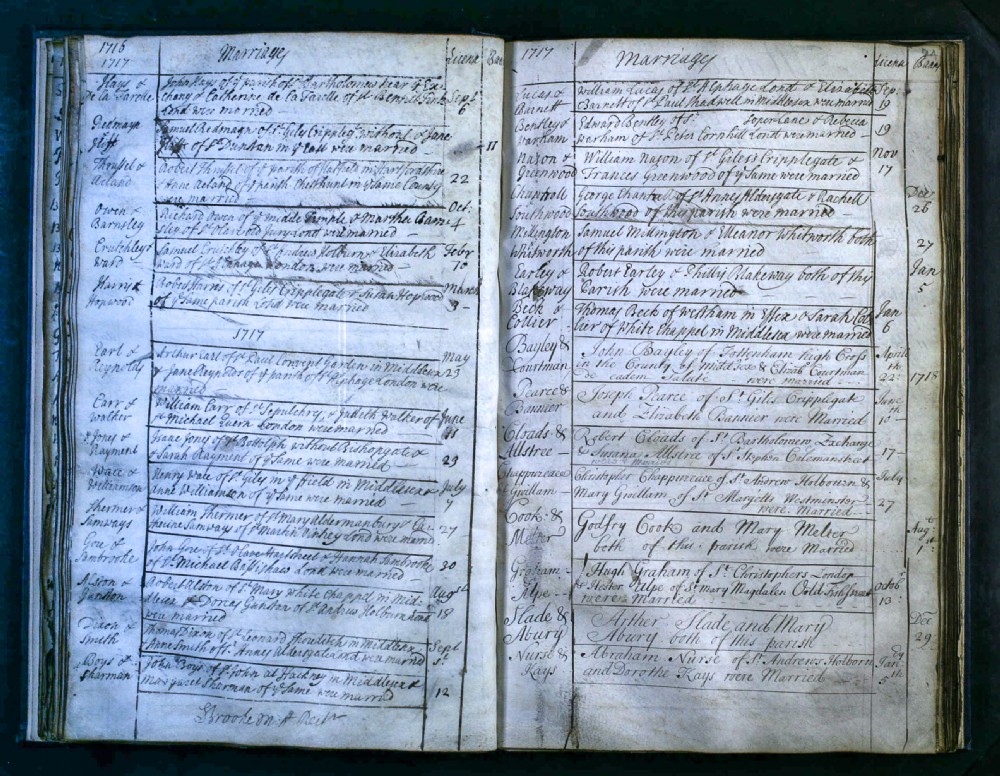 1716
1717
Marriages
Licens
Hays &
De la Favolle
John Hays of ye parish of St Bartholomew near ye Ex
chang & Catherine de la Favolle of St Bennet Fink
Lond were married
Sepr
6
Redmayn
Samuel Redmayn of St Giles Cripplegat without & Jane
of St Dunstan in ye East were married
11
Thrusel &
Acland
Robert Thrusel of ye parish of Hatfield in Hartfordshire
& Anne Acland of ye parish Chesthunt in ye same County
were married
22
Owen &
Barnsley
Richard Owen of ye middle Temple & Martha Barn
sley of St Olave Old Jury Lond were married
Oct.
4
Crutchley &
Ward
Samuel Crutchly of St Andrew Holburn & Elizabeth
Ward of London were married
Febr
10
Harris &
Hopwood
Robert Harris of St Giles Cripplegate & Susan Hopwood
of ye same parish Lond were married
March
3
1717
Earl &
Reynolds
Arthur Earl of St Paul Convent Garden in Middlesex
& Jane Reynolds of ye parish of St Alphage London were
married
May
23
Earr &
Walker
William Earr of St Sepulchry, & Judeth Walker of
St Michael Quern London were married
June
11
Jones &
Rayment
Isaac Jones of St Bottolph without Bishopgate &
Sarah Rayment of ye same were married
29
Wale &
Williamson
Henry Wale of St Giles in ye field in Middlesex &
Anne Williamson of ye same were married
July
7
Thermer &
Samways
William Thermer of St Mary Aldermanbury & Ca
therine Samways of St Martin Lond were married
27
Gore &
Sambrooke
John Gore of St Olave Hartstreet & Hannah Sambrooke
of St Michael Bassishaw Lond were married
30
Alston &
Ganston
Robert Alston of St Mary White chappel in Mid
dlesex & Dorcas Ganston of St Andrews Holburn Lond
were married
Augst
18
Dixon &
Smith
Thomas Dixon of St Leonard Shoreditch in Middlesex
& Anne Smith of St Annes Aldersgate Lond were married
Sept
5
Boys &
Sharman
John Boys of St John at Hackny in Middlesex &
Margaret Sharman of ye same were married
12
Brooke
1717
Marriages
Licens
Bans
Lucas &
Barnett
William Lucas of St Alphage Lond & Elizabeth
Barnett of St Paul Shadwell in Middlesex were married
Sep:
19
Bentley &
Warham
Edward Bentley of St Soper Lane & Rebecca
Warham of St Peter Cornhill Lond were married
19
Naxon &
Greenwood
William Naxon of St Gileses Cripplegate &
Frances Greenwood of ye same were married
Nov
17
Chantrell
Southwood
George Chantrell of St Annes Aldersgate & Rachell
Southwood of this parish were married
Dec
26
Millington
Whitworth
Samuel Millington & Elleanor Whitworth both
of this parish were married
27
Earley &
Blakeway
Robert Earley & Phillis Blakeway both of this
Parish were married
Jan
5
Beck &
Collier
Thomas Beck of Westham in Essex & Sarah Col
lier of White Chappel in Middlesex were married
Jan
6
Bayley &
Courtman
John Bayley of Tottenham high Cross
in the County of Middlesex & Elizab Courtman
de eadem were married
April
22th
1718
Pearce &
Bannier
Joseph Pearce of St Giles Cripplegat
and Elizabeth Bannier were Married
June
10th
Cloads &
Allstree
Robert Cloads of St Bartholomew Exchange
& Susana Allstree of St Stephen Colemanstreet
17
Chappineace
& Gwillam
Christopher Chappineace of St Andrew Holbourn &
Mary Gwillam of St Margetts Westminster
were Married
July
27
Cook &
Melter
Godfry Cook and Mary Melter
both of this parish were Married
Augt
1st
Graham
Pilpe
Hugh Graham of St Christophers London
& Hester Pilpe of St Mary Magdalen Oold Fish Street
were Married
Octob
13
Slade &
Abury
Arther Slade and Mary
Abury both of this parish
Dec
29
Nurse &
Kays
Abraham Nurse of St Andrews Holborn
and Dorothe Kays were Married
Jan
5th